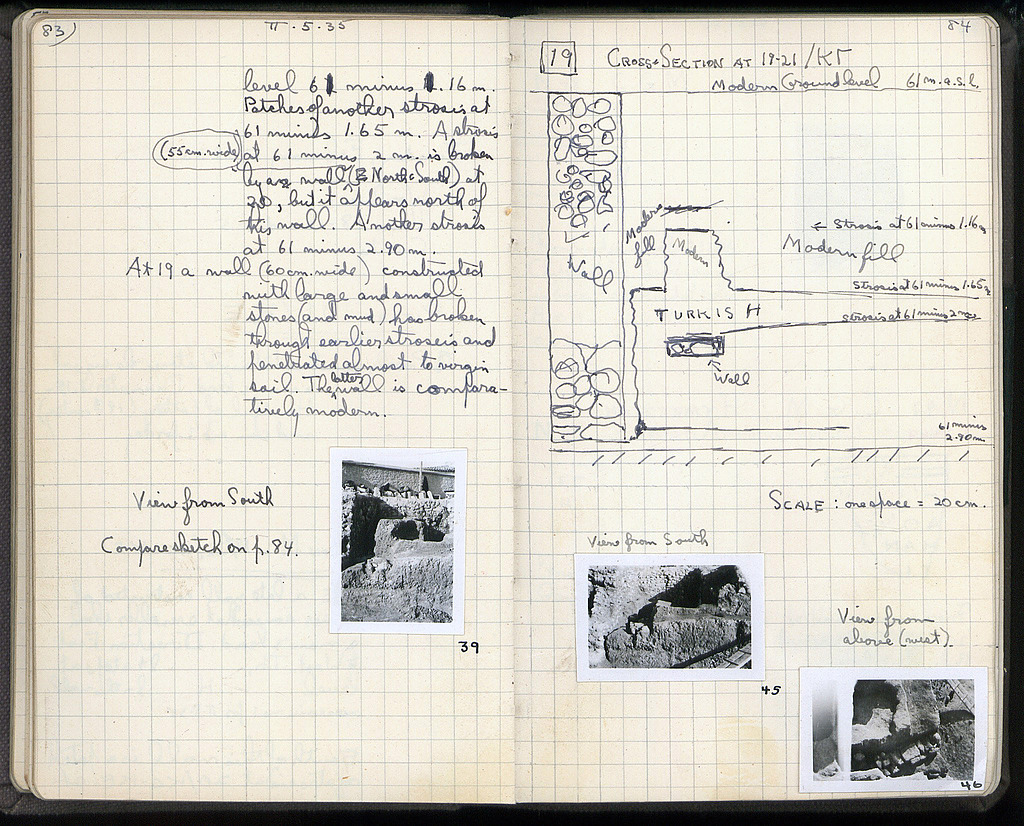 83)
π·5·35
level 61 minus 1.16 m.
Patches of another strosis at
61 minus 1.65 m. A strosis
(55cm. wide)
at 61 minus 2 m. is broken
by a wall (North & South) at
20, but it appears north of
this wall. Another strosis
at 61 minus 2.90 m.
At 19 a wall (60cm. wide) constructed
with large and small
stones (and mud) has broken
through earlier stroseis and
penetrated almost to virgin
soil. The latter wall is compara-
tively modern.
View from South
Compare sketch on p. 84.
39
84
19
CROSS-SECTION AT 19-21/ΚΓ
Modern Ground level 61 m. a.s.l.
Modern
fill
Modern
← Strosis at 61 minus 1.16m
Modern fill
Wall
Strosis at 61 minus 1.65m
TURKISH
strosis at 61 minus 2 m
Wall
61 minus
2.90 m.
SCALE : one space = 20 cm.
View from South
45
View from
above (west).
46